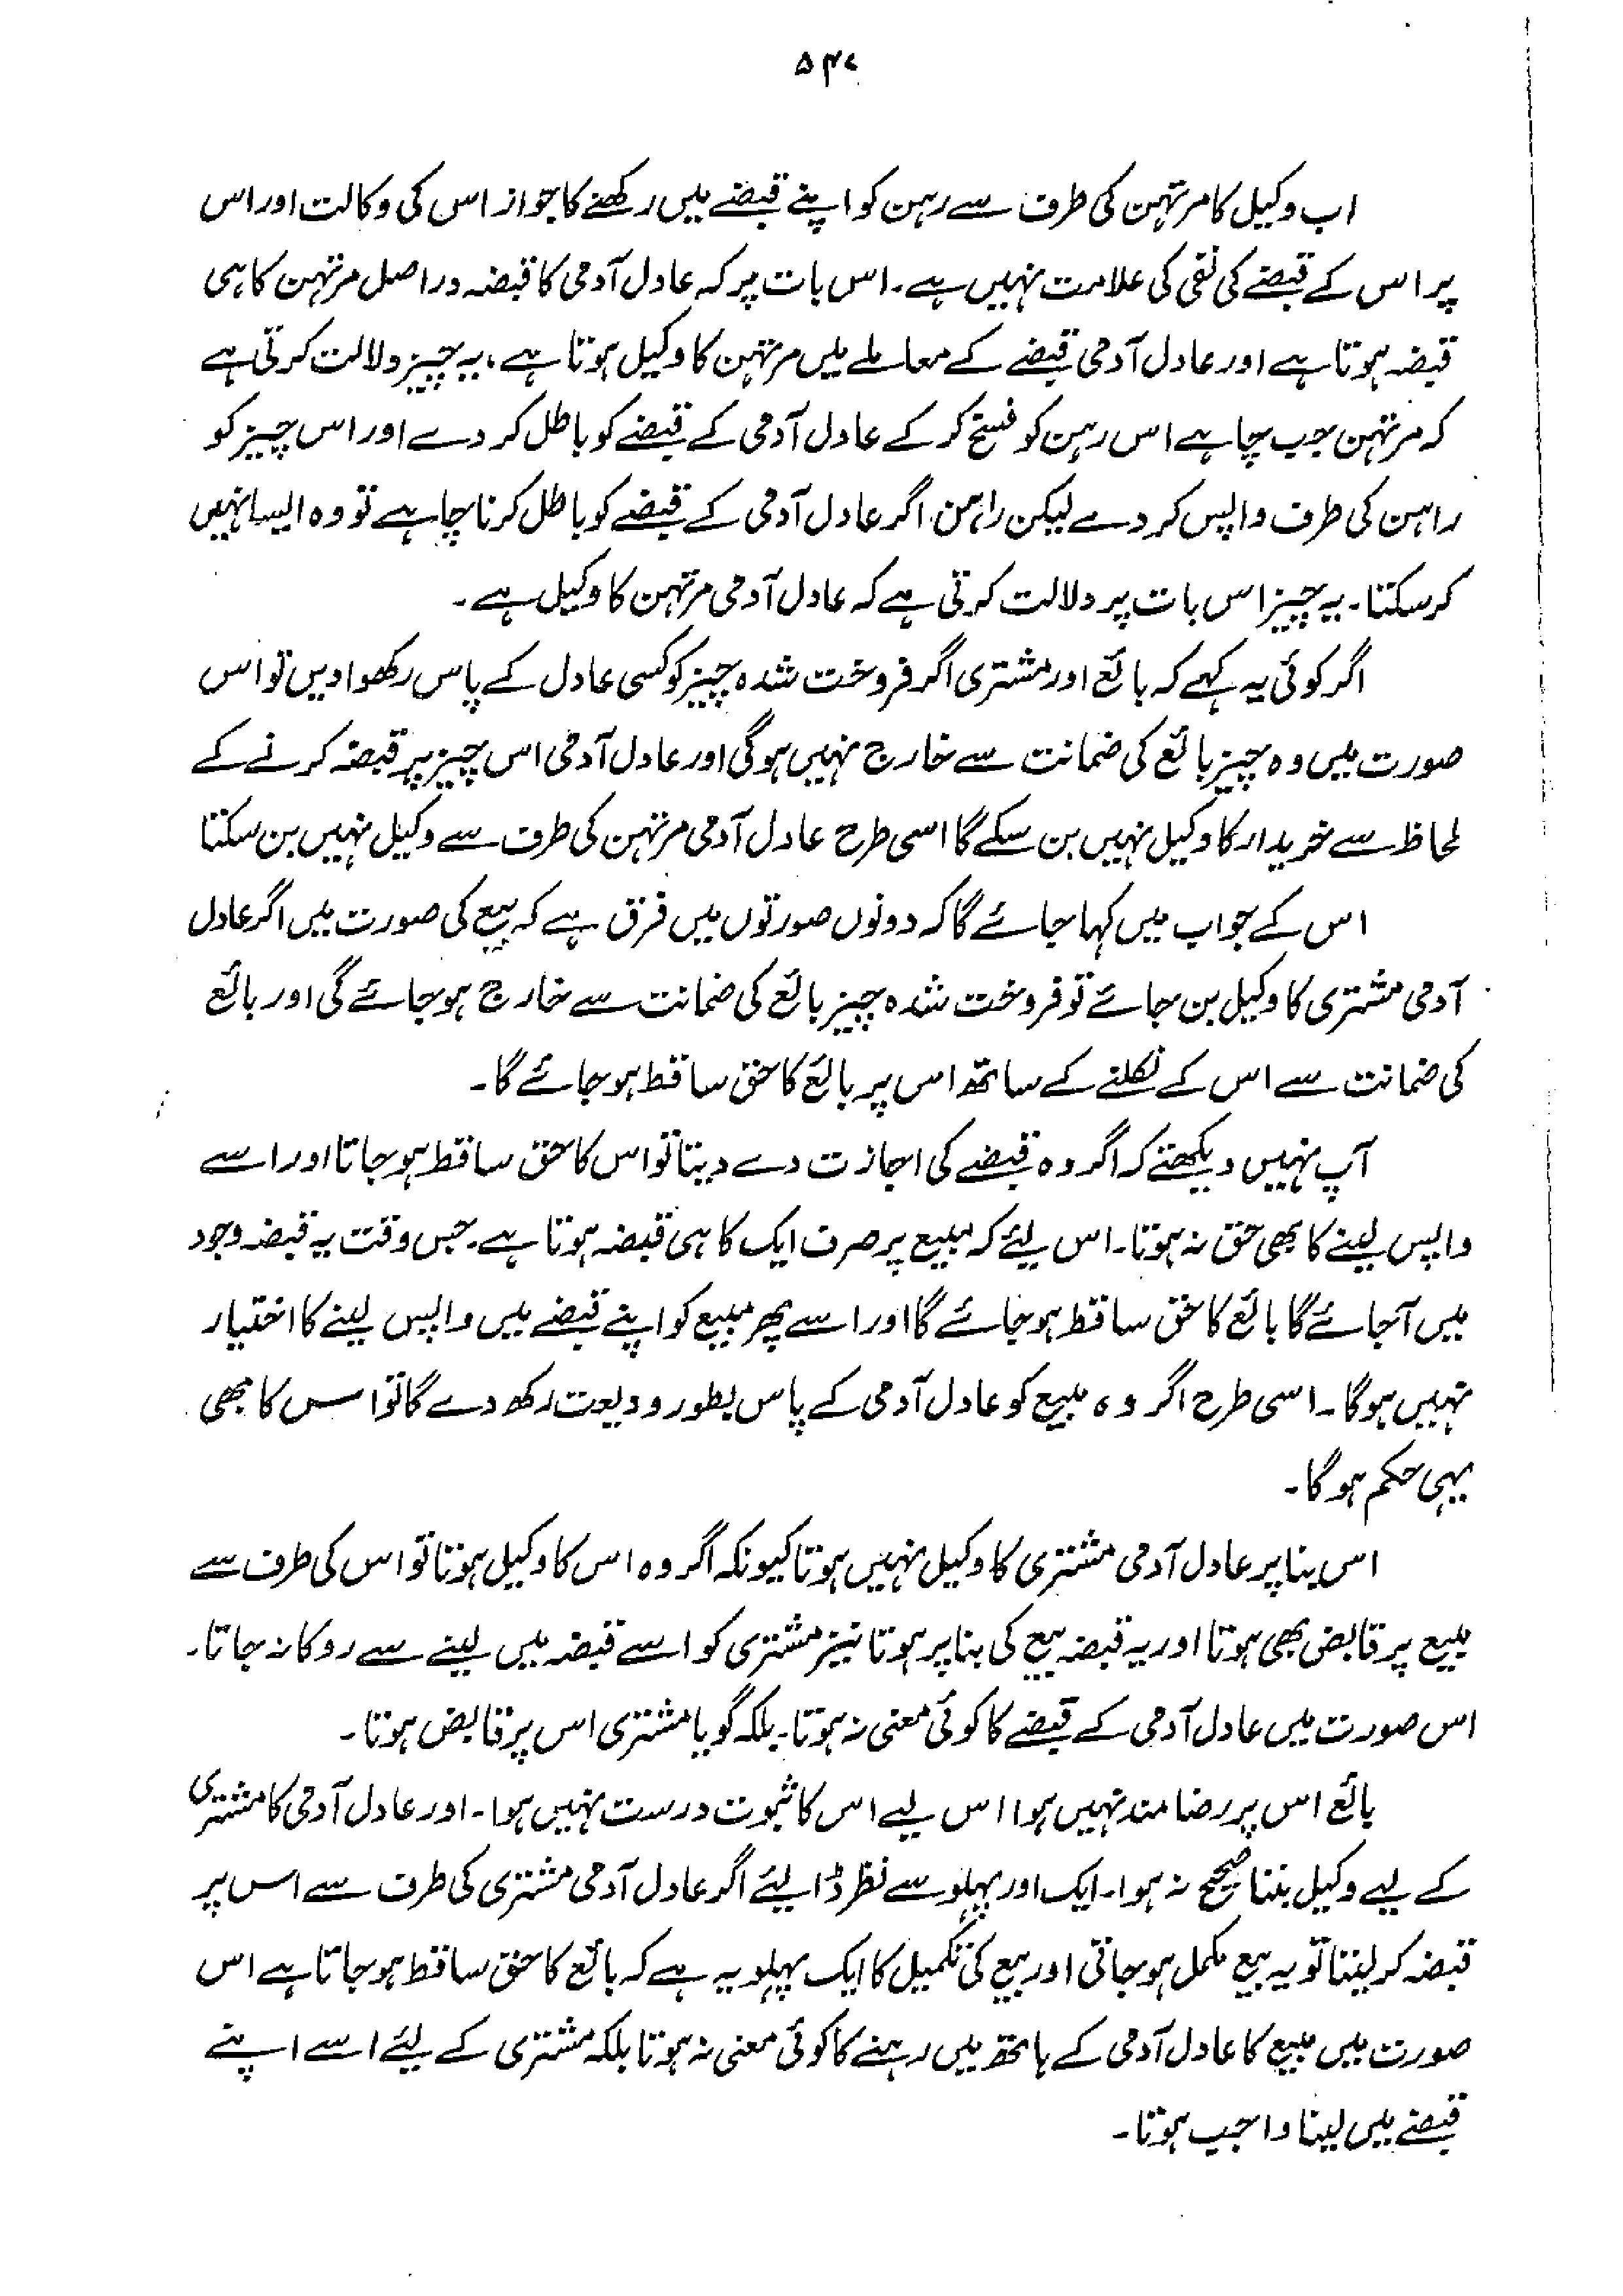 ۵۴۷
اب وکیل کا مرتہن کی طرف سے رہن کو اپنے قبضے میں رکھنے کا جواز اس کی وکالت اور اس
پر اس کے قبضے کی نفی کی علامت نہیں ہے۔ اس بات پر کہ عادل آدمی کا قبضہ دراصل مرتہن کا ہی
قبضہ ہوتا ہے اور عادل آدمی قبضے کے معاملے میں مرتہن کا وکیل ہوتا ہے، یہ چیز دلالت کرتی ہے
کہ مرتہن جب چاہے اس رہن کو فسخ کر کے عادل آدمی کے قبضے کو باطل کر دے اور اس چیز کو
راہن کی طرف واپس کر دے لیکن راہن اگر عادل آدمی کے قبضے کو باطل کرنا چاہے تو وہ ایسا نہیں
کر سکتا۔ یہ چیز اس بات پر دلالت کرتی ہے کہ عادل آدمی مرتہن کا وکیل ہے۔
اگر کوئی یہ کہے کہ بائع اور مشتری اگر فروخت شدہ چیز کو کسی عادل کے پاس رکھوا دیں تو اس
صورت میں وہ چیز بائع کی ضمانت سے خارج نہیں ہوگی اور عادل آدمی اس چیز پر قبضہ کرنے کے
لحاظ سے خریدار کا وکیل نہیں بن سکے گا اسی طرح عادل آدمی مرتہن کی طرف سے وکیل نہیں بن سکتا
اس کے جواب میں کہا جائے گا کہ دونوں صورتوں میں فرق ہے کہ بیع کی صورت میں اگر عادل
آدمی مشتری کا وکیل بن جائے تو فروخت شدہ چیز بائع کی ضمانت سے خارج ہو جائے گی اور بائع
کی ضمانت سے اس کے نکلنے کے ساتھ اس پر بائع کا حق ساقط ہو جائے گا۔
آپ نہیں دیکھتے کہ اگر وہ قبضے کی اجازت دے دیتا تو اس کا حق ساقط ہو جاتا اور اسے
واپس لینے کا بھی حق نہ ہوتا۔ اس لئے کہ مبیع پر صرف ایک کا ہی قبضہ ہوتا ہے۔ جس وقت یہ قبضہ وجود
میں آ جائے گا بائع کا حق ساقط ہو جائے گا اور اسے پھر مبیع کو اپنے قبضے میں واپس لینے کا اختیار
نہیں ہوگا۔ اسی طرح اگر وہ مبیع کو عادل آدمی کے پاس بطور ودیعت رکھ دے گا تو اس کا بھی
یہی حکم ہوگا۔
اس بنا پر عادل آدمی مشتری کا وکیل نہیں ہوتا کیونکہ اگر وہ اس کا وکیل ہوتا تو اس کی طرف سے
مبیع پر قابض بھی ہوتا اور یہ قبضہ بیع کی بنا پر ہوتا نیز مشتری کو اسے قبضہ میں لینے سے روکا نہ جاتا۔
اس صورت میں عادل آدمی کے قبضے کا کوئی معنی نہ ہوتا۔ بلکہ گویا مشتری اس پر قابض ہوتا۔
بائع اس پر رضامند نہیں ہوا اس لیے اس کا ثبوت درست نہیں ہوا۔ اور عادل آدمی کا مشتری
کے لیے وکیل بننا صحیح نہ ہوا۔ ایک اور پہلو سے نظر ڈالیئے اگر عادل آدمی مشتری کی طرف سے اس پر
قبضہ کر لیتا تو یہ بیع مکمل ہو جاتی اور بیع کی تکمیل کا ایک پہلو یہ ہے کہ بائع کا حق ساقط ہو جاتا ہے اس
صورت میں مبیع کا عادل آدمی کے ہاتھ میں رہنے کا کوئی معنی نہ ہوتا بلکہ مشتری کے لیئے اسے اپنے
قبضے میں لینا واجب ہوتا۔